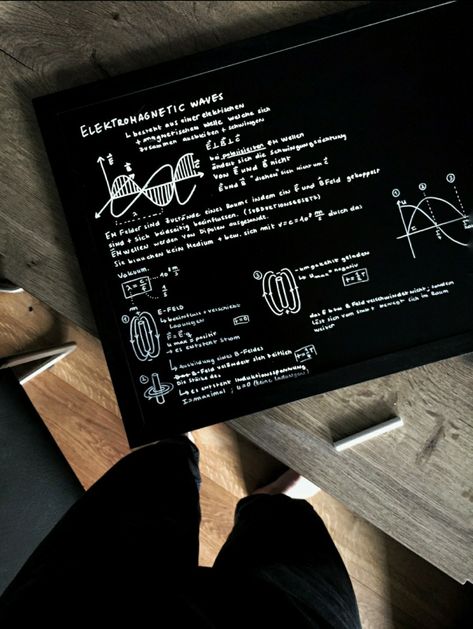 ELEKTROMAGNETIC WAVES
↳ besteht aus einer elektrischen
+ magnetischen Welle welche sich
zusammen ausbreiten + schwingen
E⃗ ⊥ B⃗ ⊥ c⃗
bei polarisierten EM Wellen
ändert sich die Schwingungsrichtung
von E⃗ und B⃗ nicht
E⃗ und B⃗ "drehen" sich nicht um c⃗
λ
EM Felder sind Zustände eines Raums indem ein E⃗ und B⃗ Feld gekoppelt
sind + sich beidseitig beeinflussen. (Induktionsgesetz)
EM Wellen werden von Dipolen ausgesandt.
Sie brauchen kein Medium + bew. sich mit durch das
Vakuum.
λ = c/f
m
E-Feld
↳ beeinflusst + verschiebt
Ladungen
t=0
u max = positiv
→ es entsteht Strom
↳ Ausbildung eines B-Feldes
B-Feld verändert sich zeitlich
Die Stärke des
↳ es entsteht Induktionsspannung
I = maximal, u=0 (keine Ladungen)
③
umgekehrt geladen
↳ negativ
das E bzw B Feld verschwindet nicht, sondern
löst sich vom und bewegt sich im Raum
weiter
① ② ③